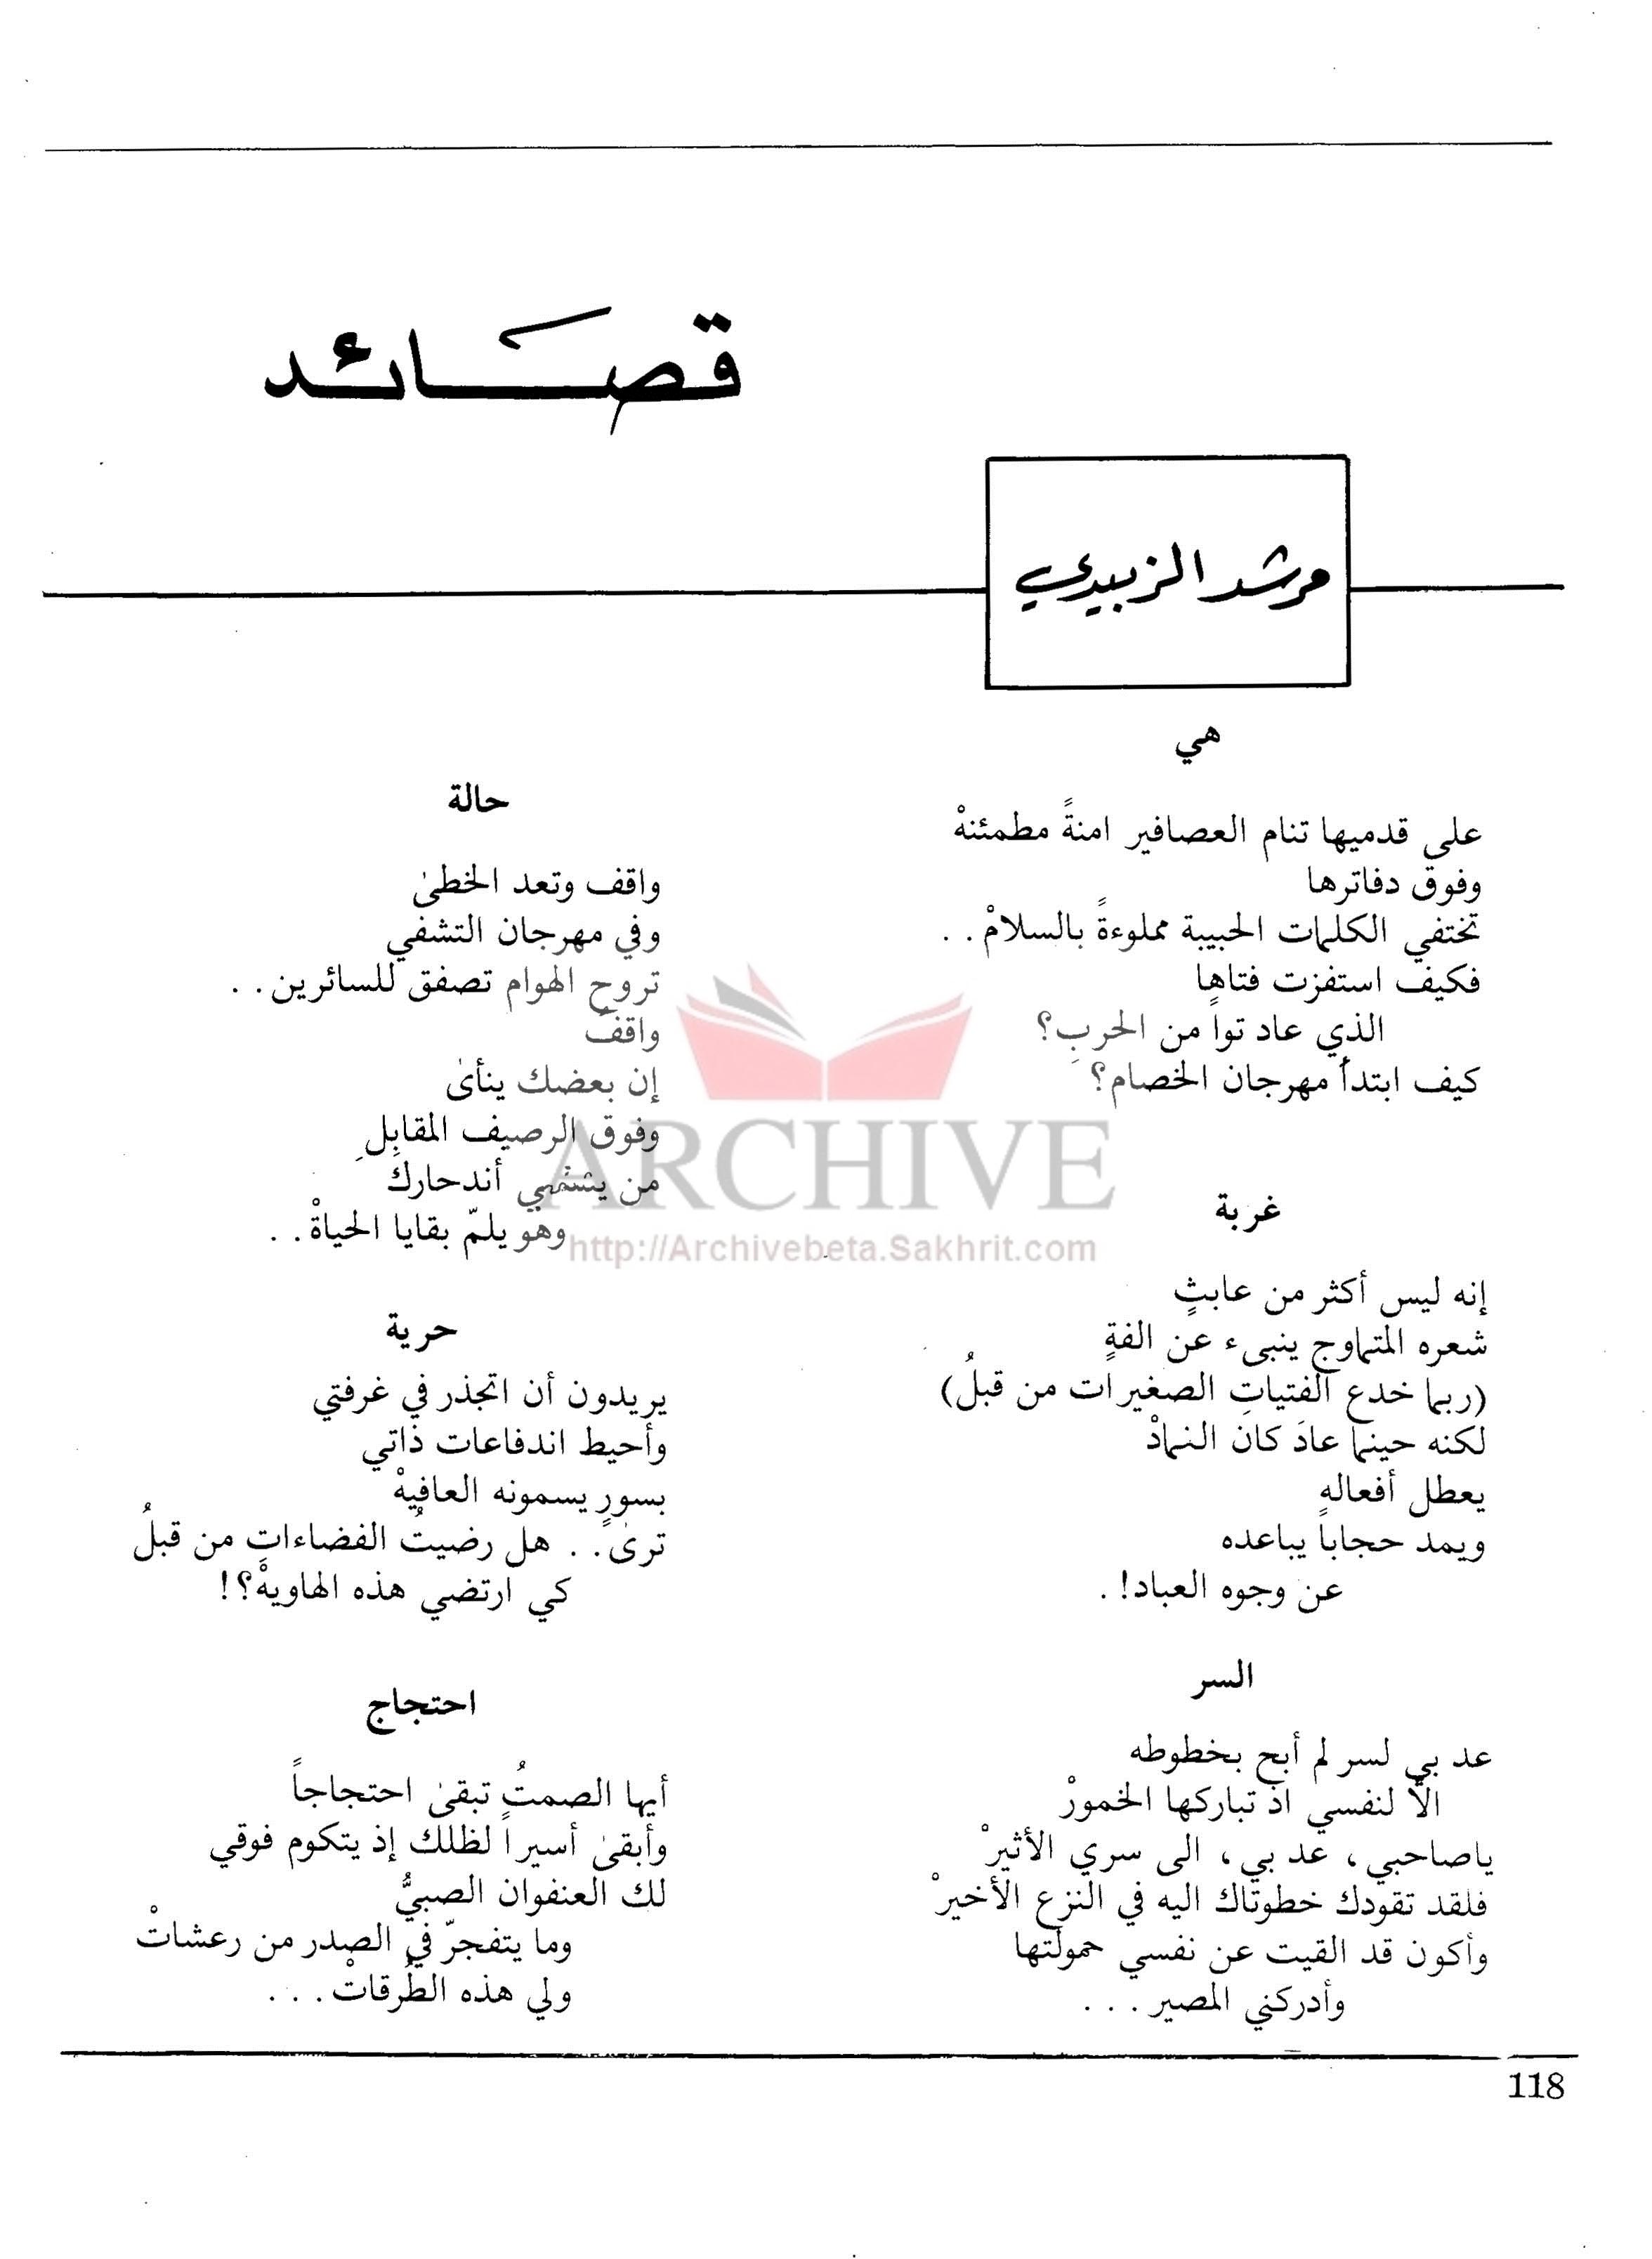 قصائد
مرشد الزبيدي
هي
على قدميها تنام العصافير امنةً مطمئنهْ
وفوق دفاترها
تختفي الكلمات الحبيبة مملوءةً بالسلامْ . .
فكيف استفزت فتاها
الذي عاد تواً من الحربِ؟
كيف ابتدأ مهرجان الخصام؟
غربة
إنه ليس أكثر من عابثٍ
شعره المتماوج ينبىء عن الفةٍ
(ربما خدع الفتياتِ الصغيرات من قبلُ)
لكنه حينما عادَ كان النمادْ
يعطل أفعاله
ويمد حجاباً يباعده
عن وجوه العباد! .
السر
عد بي لسر لم أبح بخطوطه
الاّ لنفسي اذ تباركها الخمورْ
ياصاحبي، عد بي، الى سري الأثيرْ
فلقد تقودك خطوتاك اليه في النزع الأخيرْ
وأكون قد القيت عن نفسي حمولتها
وأدركني المصير . . .
حالة
واقف وتعد الخطىٰ
وفي مهرجان التشفي
تروح الهوام تصفق للسائرين . .
واقفٌ
إن بعضك ينأىٰ
وفوق الرصيف المقابِلِ
من يشتهي أندحارك
وهو يلمّ بقايا الحياةْ . .
حرية
يريدون أن اتجذر في غرفتي
وأحيط اندفاعات ذاتي
بسورٍ يسمونه العافيهْ
ترىٰ . . هل رضيتُ الفضاءاتِ من قبلُ
كي ارتضي هذه الهاويهْ؟!
احتجاج
أيها الصمتُ تبقىٰ احتجاجاً
وأبقىٰ أسيراً لظلك إذ يتكوم فوقي
لك العنفوان الصبيُّ
وما يتفجرّ في الصدر من رعشاتْ
ولي هذه الطُرقاتْ . . .
118
ARCHIVE
http://Archivebeta.Sakhrit.com